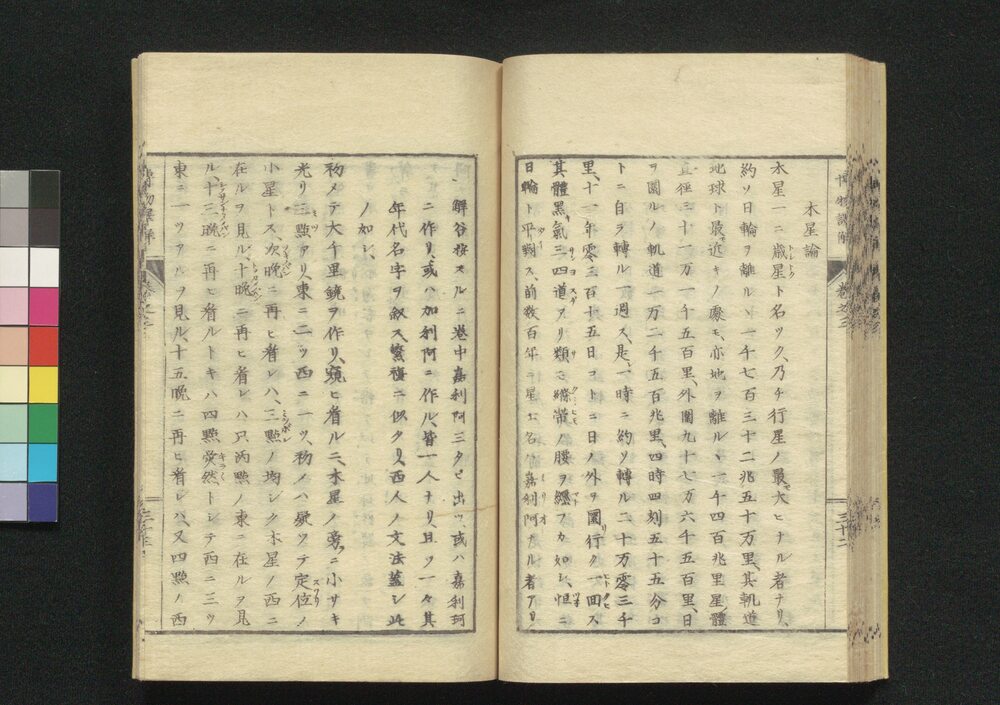 木星論
木星一ニ歳星ト名ツク、乃チ行星ノ最大ヒナル者ナリ、
約ソ日輪ヲ離ルヽ一千七百三十二兆五十万里、其軌道
地球ト最近キノ處モ、亦地ヲ離ルヽ一千四百兆里星體
直徑三十一万一千五百里、外圍九十七万六千五百里、日
ヲ圜ルノ軌道一万二千五百兆里、四時四刻五十五分コ
トニ自ラ轉ル一週ス、是一時ニ約ソ轉ル二十万零三千
里、十一年零三百十五日コトニ日ノ外ヲ圜行ク一回ス
其體黑氣三四道アリ類モ縧帶ノ腰ヲ纒フカ如シ、恒ニ
日輪ト平
ス、前数百年ニ星士名ハ嘉利阿ナル者アリ
三十二
解谷按スルニ巻中嘉利阿三タビ出ツ、或ハ嘉利珂
ニ作リ、或ハ加利阿ニ作ル、皆一人ナリ、且ツ一々其
年代名字ヲ敘ス、繁複ニ似タリ、西人ノ文法蓋シ此
ノ如シ、
初メテ大千里鏡ヲ作リ、窺ヒ看ルニ、木星ノ旁ニ小サキ
光リ三點アリ、東ニ二ツ西ニ一ツ、初ノハ疑ツテ定位ノ
小星トス次晩ニ再ヒ看レハ、三點ノ均シク木星ノ西ニ
在ルヲ見ル、十晩ニ再ヒ看レハ只両點ノ東ニ在ルヲ見
ル、十三晩ニ再ヒ看ルトキハ四點熒然トシテ西ニ三ツ
東ニ一ツアルヲ見ル、十五晩ニ再ヒ看レハ、又四點ノ西